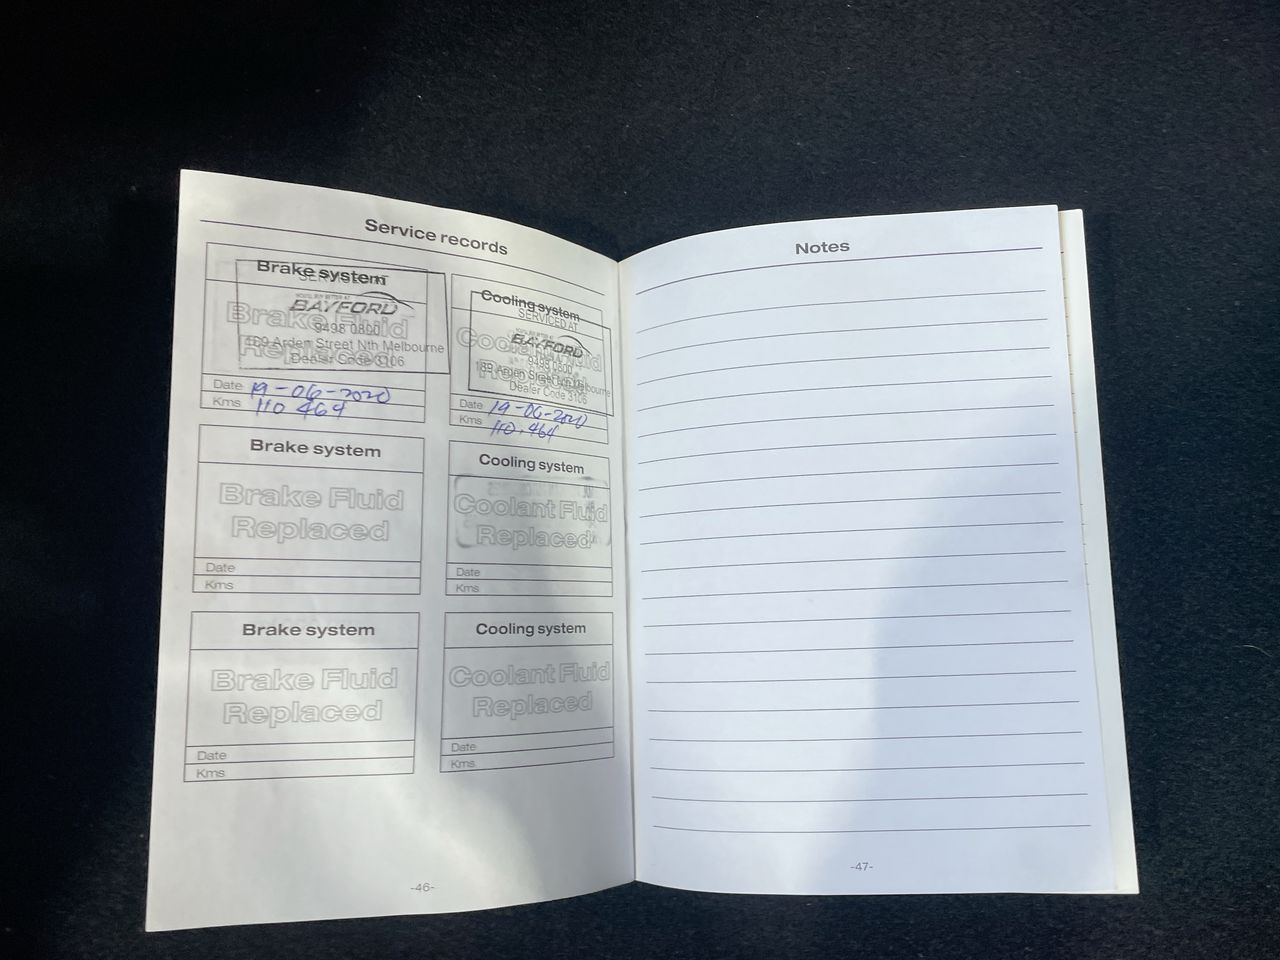 Service records
Brake system
SERVICED AT
BAYFORD
9498 0800
189 Arden Street Nth Melbourne
Dealer Code 3106
Brake Fluid
Replaced
Date 19-06-2020
Kms 110 464
Cooling system
SERVICED AT
BAYFORD
9498 0800
189 Arden Street Nth Melbourne
Dealer Code 3106
Coolant Fluid
Replaced
Date 19-06-2020
Kms 110,464
Brake system
Brake Fluid
Replaced
Date
Kms
Cooling system
Coolant Fluid
Replaced
Date
Kms
Brake system
Brake Fluid
Replaced
Date
Kms
Cooling system
Coolant Fluid
Replaced
Date
Kms
-46-
Notes
-47-